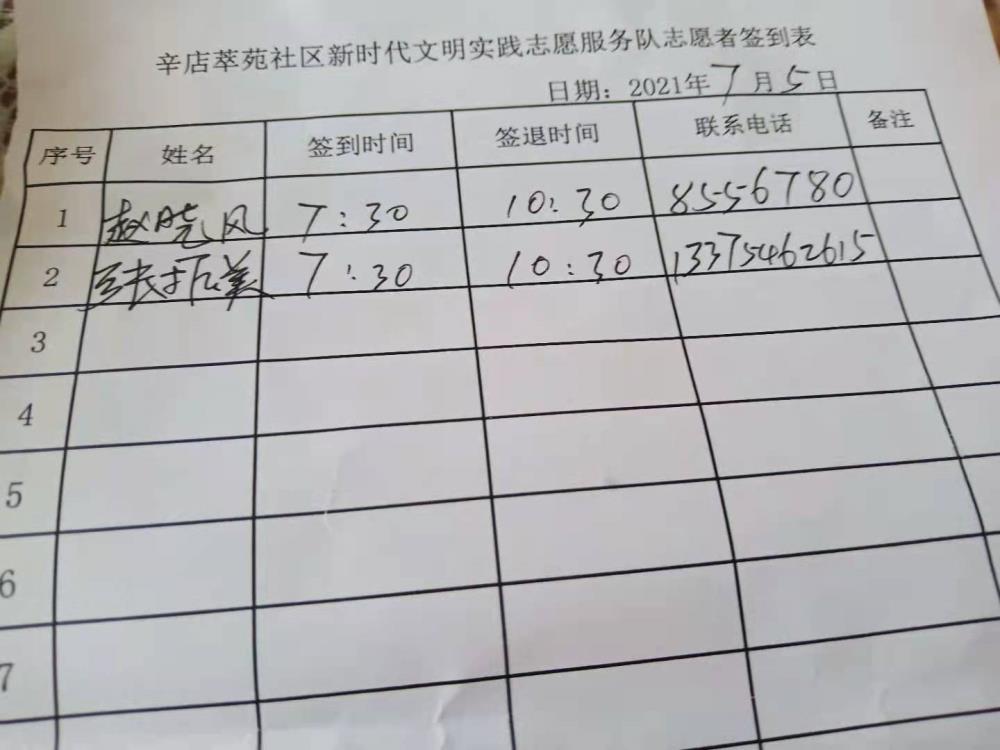 辛店萃苑社区新时代文明实践志愿服务队志愿者签到表
日期：2021年7月5日
序号 姓名 签到时间 签退时间 联系电话 备注
1 赵晓风 7:30 10:30 8556780
2 7:30 10:30 13375462615
3
4
5
6
7